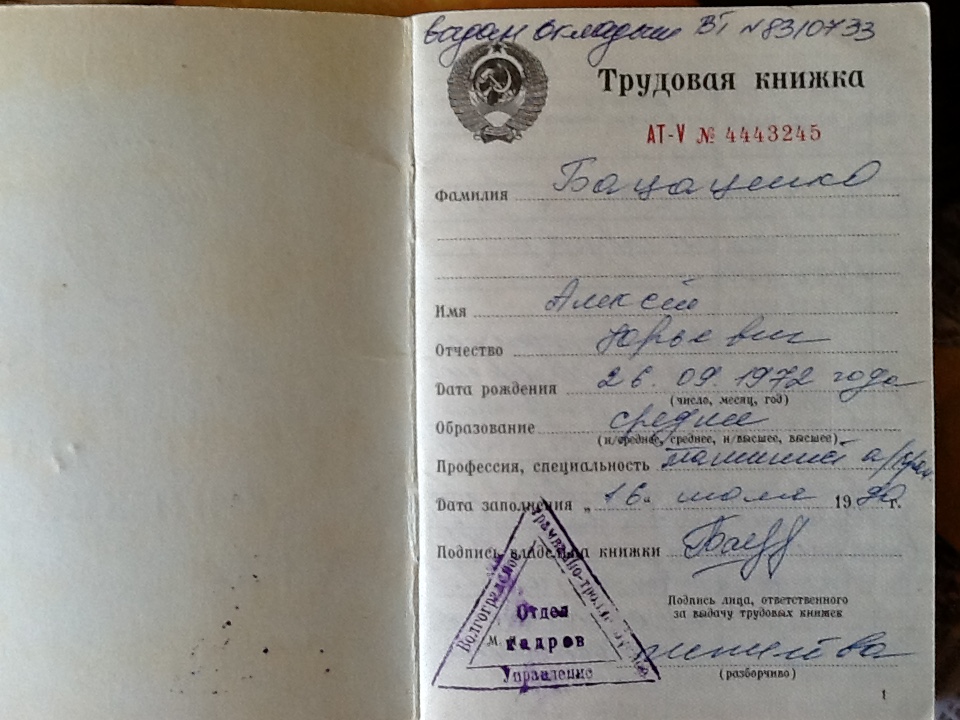 выдан вкладыш ВТ №8310733
Трудовая книжка
АТ-V № 4443245
Фамилия
Имя Алексей
Отчество Юрьевич
Дата рождения 26. 09. 1972 года
(число, месяц, год)
Образование среднее
(н/среднее, среднее, н/высшее, высшее)
Профессия, специальность
Дата заполнения „16“ 19 90 г.
Подпись владельца книжки
Подпись лица, ответственного
за выдачу трудовых книжек
М. П.
(разборчиво)
Волгоградское
трамвайно-троллейбусное
Управление
Отдел
кадров
1